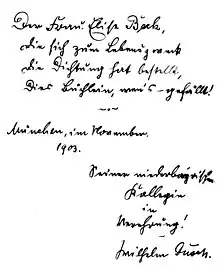 Der Frau Elise Beck,
die sich zum Lebenszweck
die Dichtung hat bestellt,
Dies Büchlein, wenn's - gefällt!
München, im November.
1903.
Seiner niederbayrischen
Kollegin
in
Verehrung!
Wilhelm